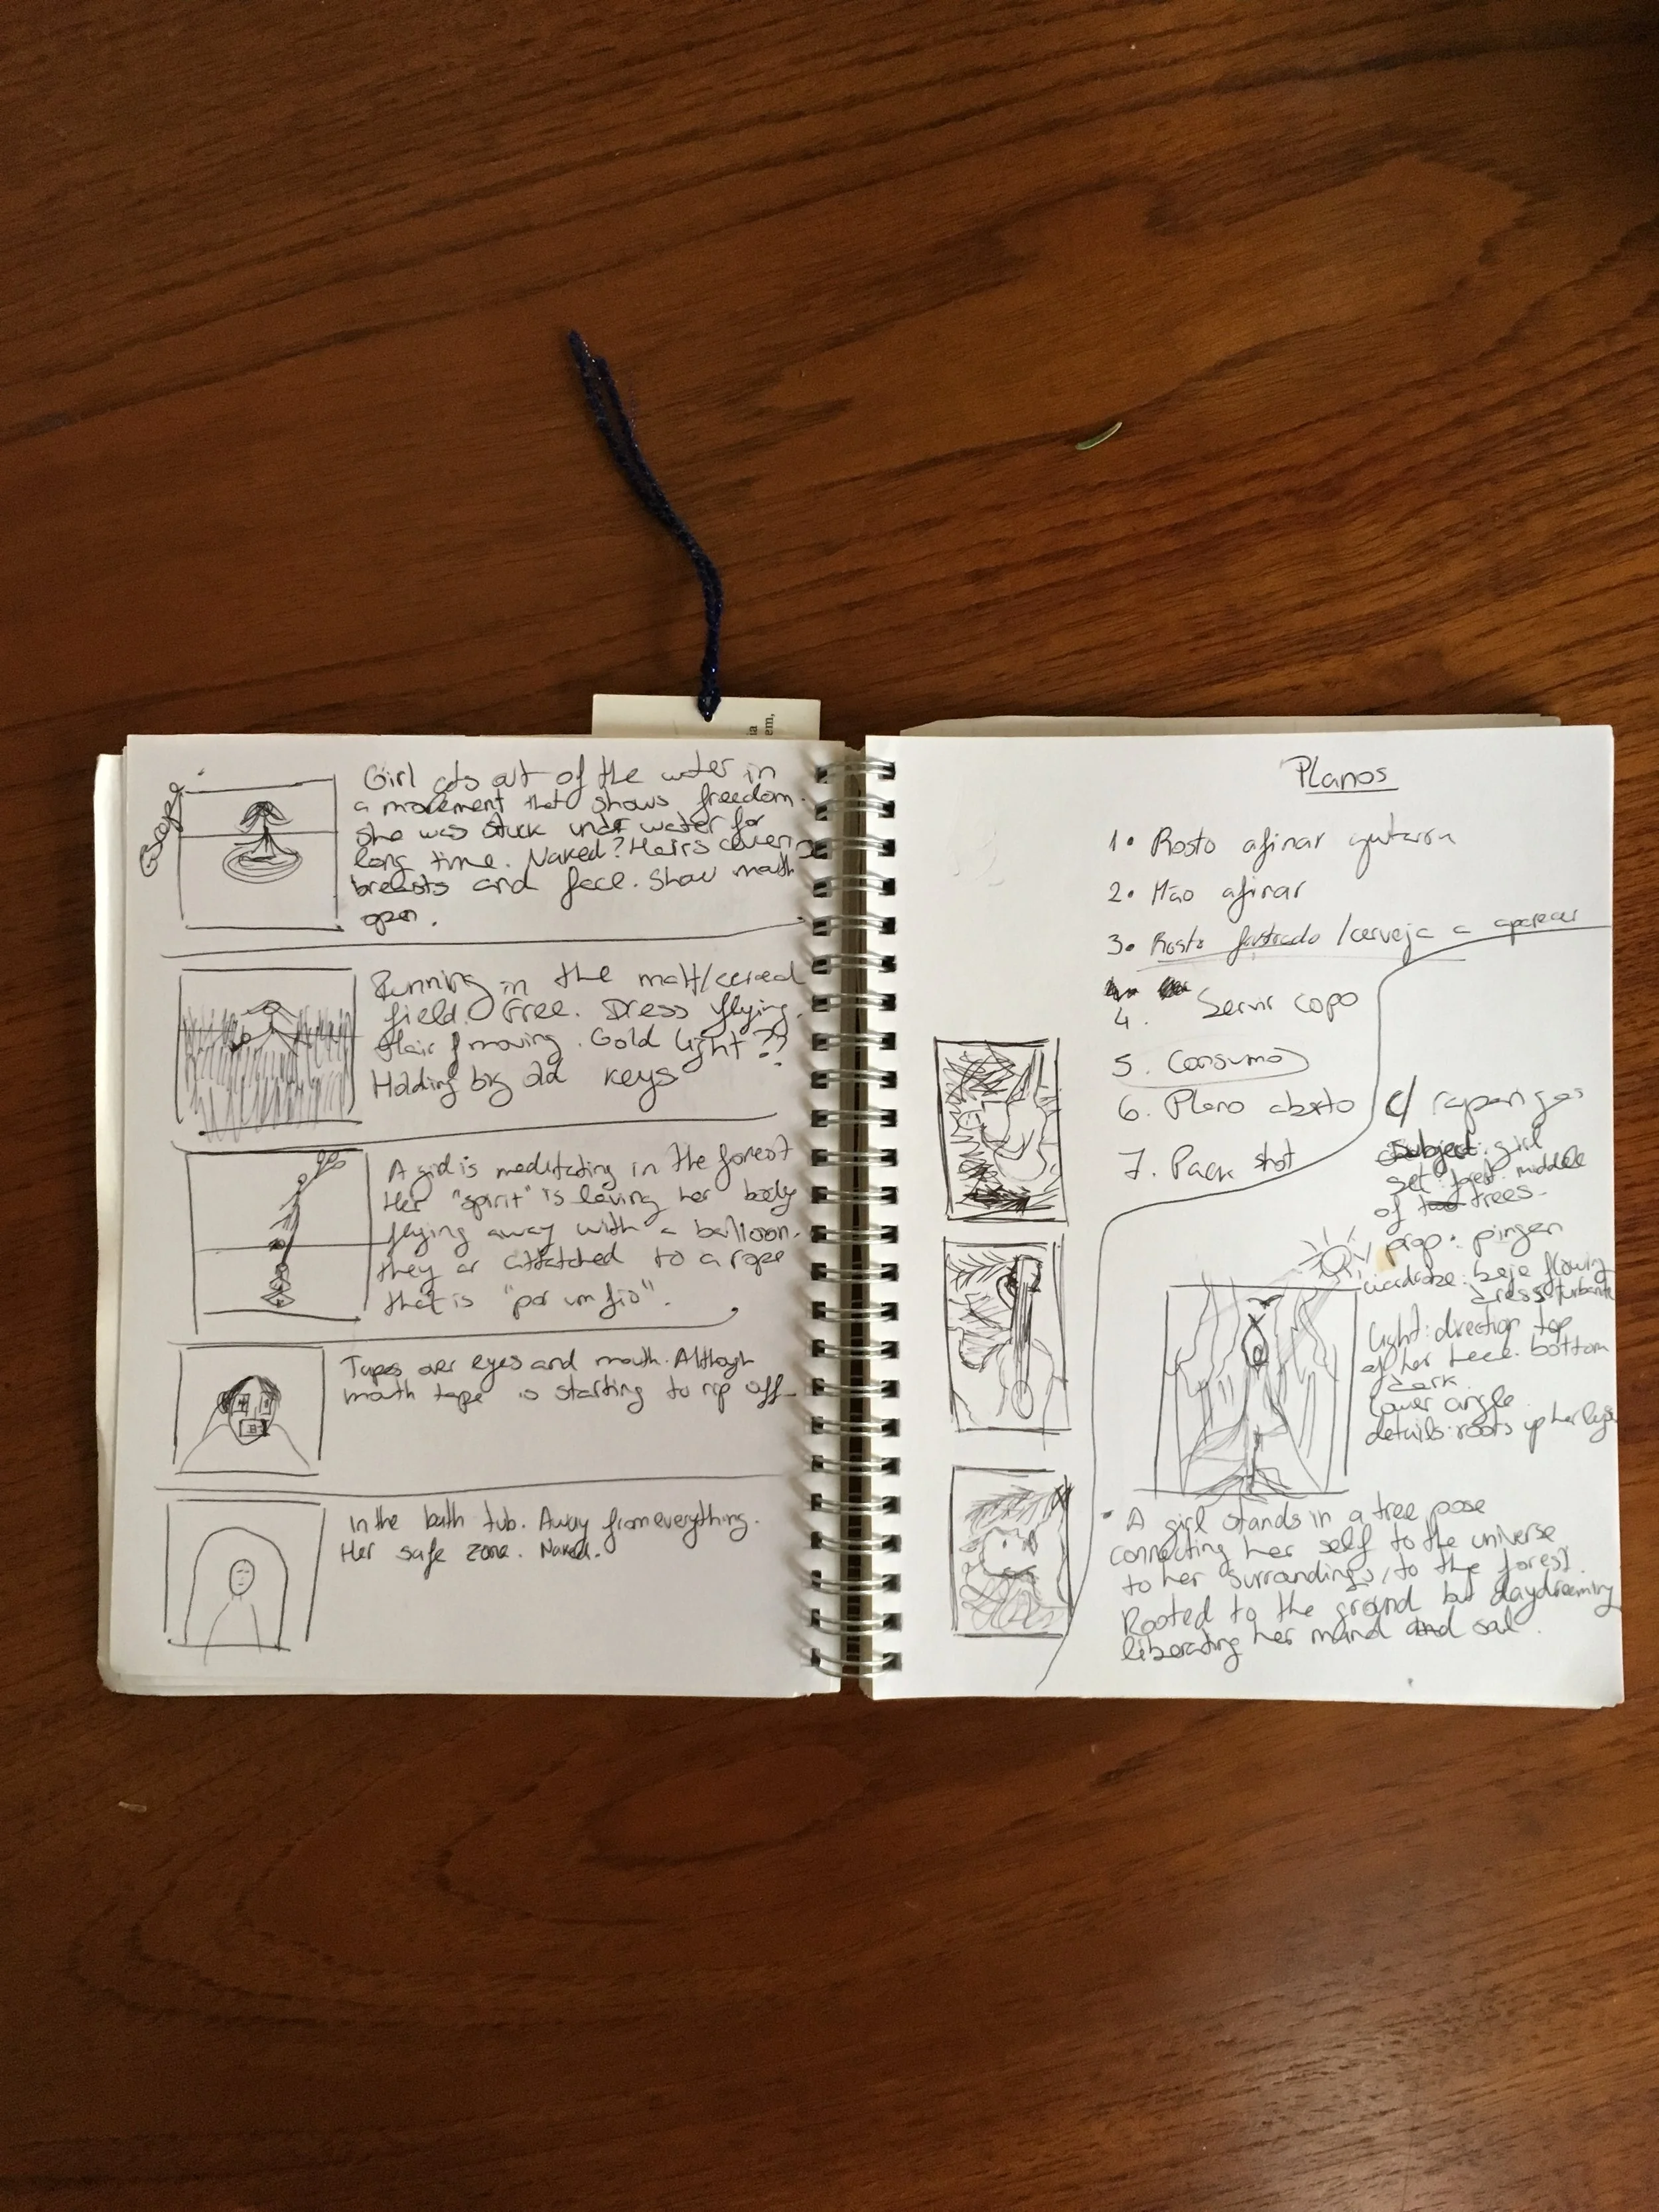 Escape
Girl gets out of the water in
a movement that shows freedom.
She was stuck under water for
long time. Naked? Hairs covering
breasts and face. Show mouth
open.
Running in the malt/cereal
field. Free. Dress flying.
Hair moving. Gold light??
Holding big old keys
A girl is meditating in the forest
Her "spirit" is leving her body
flying away with a balloon.
they ar attatched to a rope
that is "por um fio".
Tapes over eyes and mouth. Although
mouth tape is starting to rip off
In the bath tub. Away from everything.
Her safe zone. Naked.
ia
em,
Planos
1. Rosto afinar guitarra
2. Mão afinar
3. Rosto frustrado / cerveja a aparecer
4. Servir copo
5. Consumo
6. Plano aberto c/ raparigas
7. Pack shot
Subject: girl
set: forest middle
of trees.
prop:
wardrobe: beje flowing
dress turbante
Light: direction top
of her head. bottom
dark
lower angle
details: roots up her legs
• A girl stands in a tree pose
connecting her self to the universe
to her surroundings, to the forest.
Rooted to the ground but daydreaming
liberating her mind and soul.